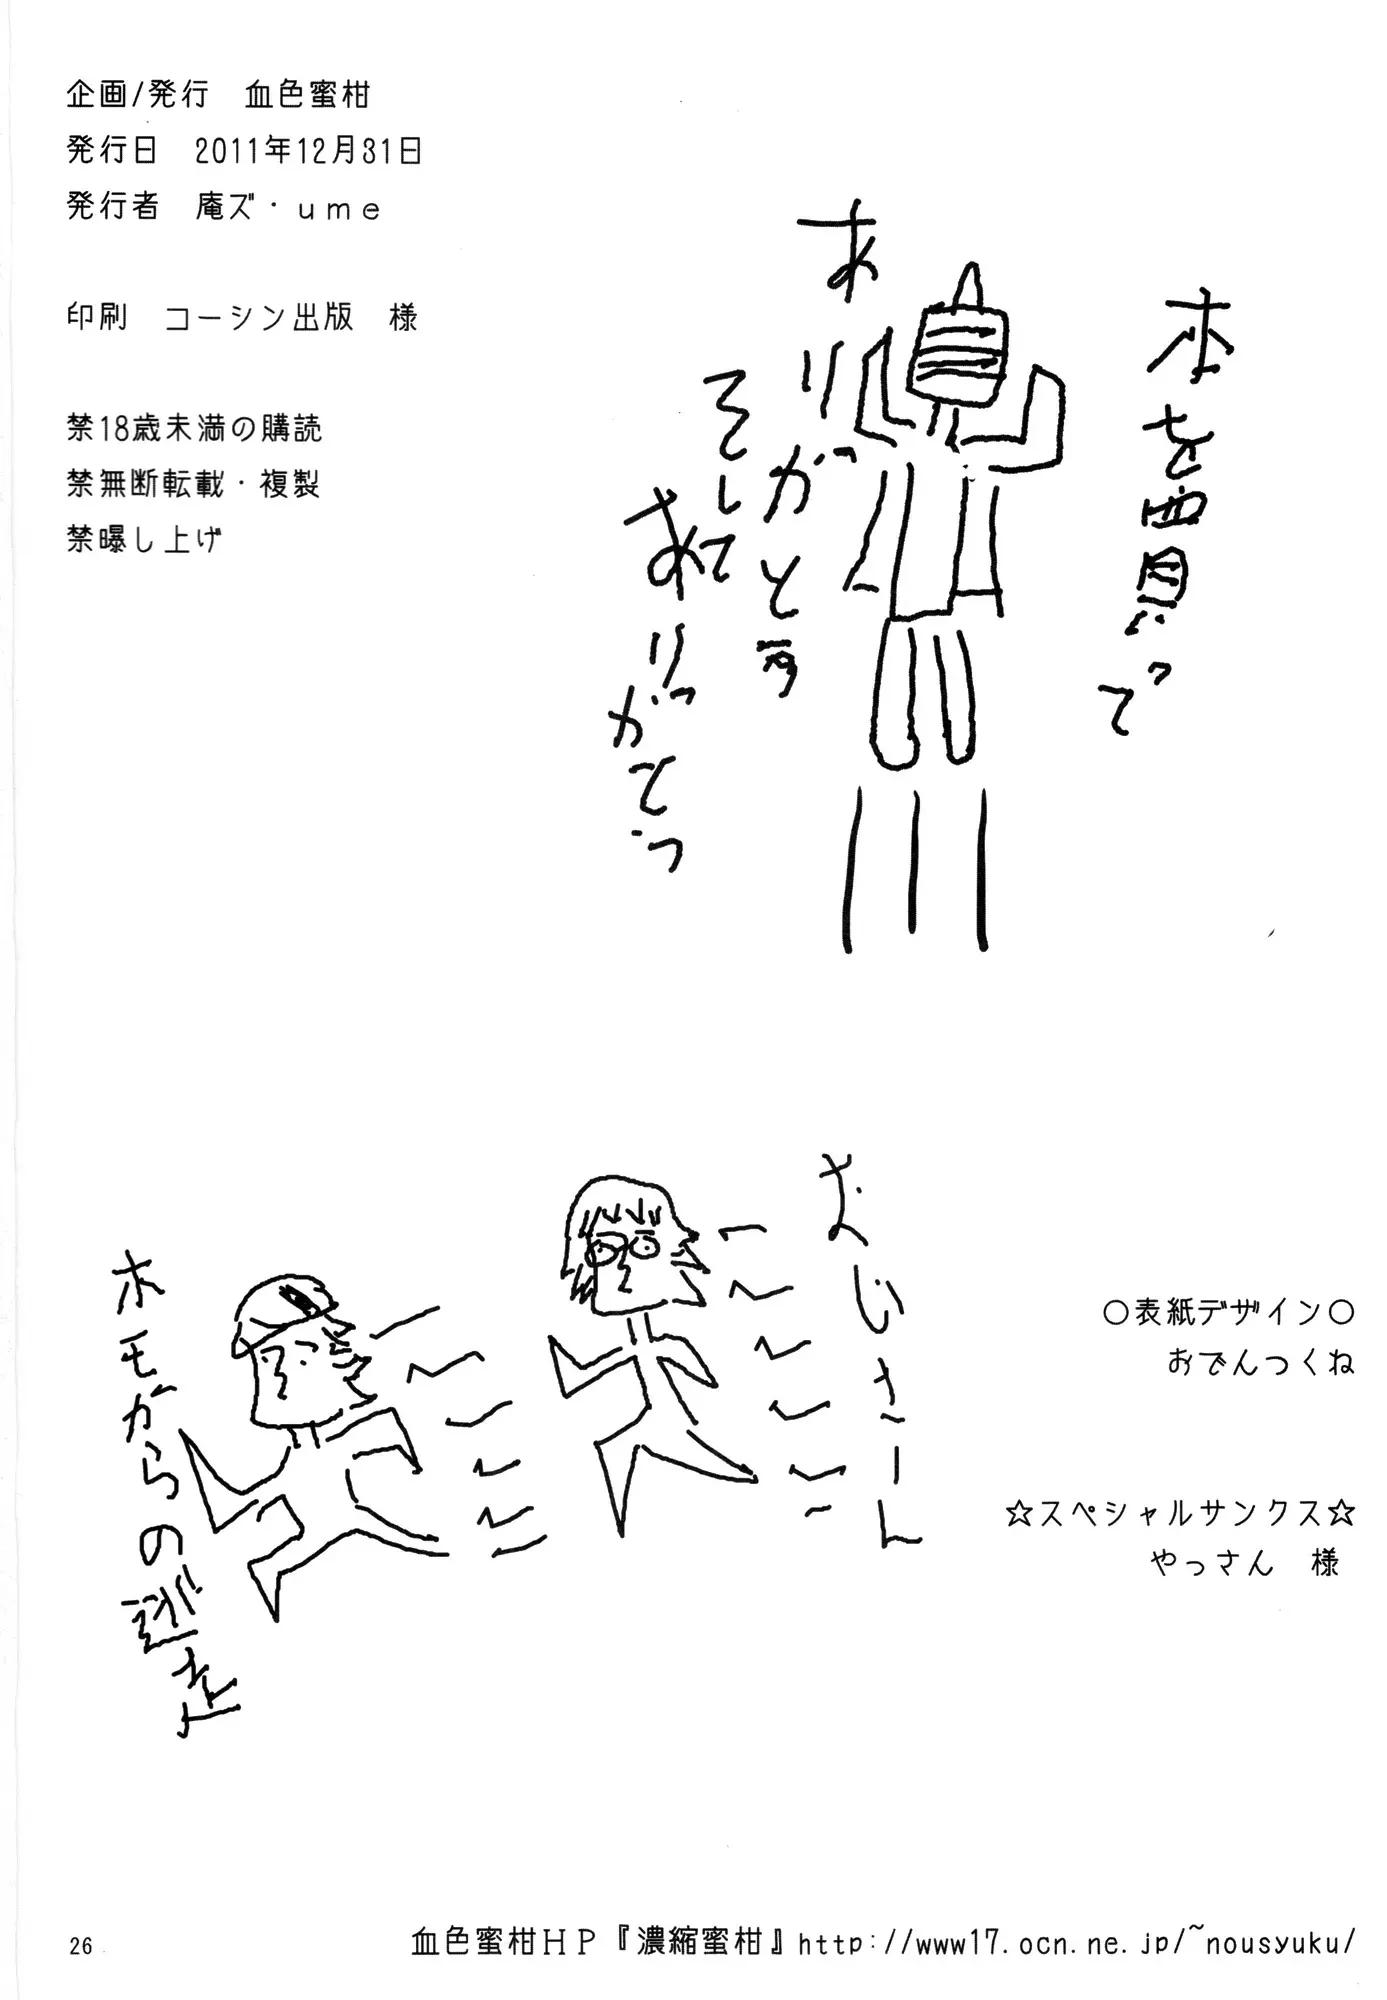 企画/発行　血色蜜柑
発行日　2011年12月31日
発行者　庵ズ・ｕｍｅ
印刷　コーシン出版　様
禁18歳未満の購読
禁無断転載・複製
禁曝し上げ
本を買って
ありがとう
そして
ありがとう
おじさーん
ホモからの逃走
○表紙デザイン○
おでんつくね
☆スペシャルサンクス☆
やっさん　様
26
血色蜜柑ＨＰ『濃縮蜜柑』http://www17.ocn.ne.jp/~nousyuku/